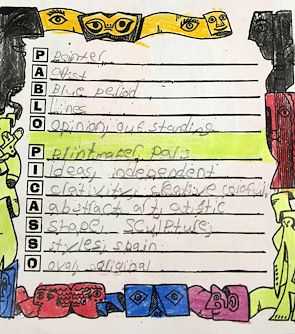 P Painter,
A Artist
B Blue period
L Lines
O opinion, out standing
P Printmaker, paris
I Ideas, independent
C creativity, creative colorful
A abstract art, artistic
S shape, sculpture,
S styles, spain
O oval, original